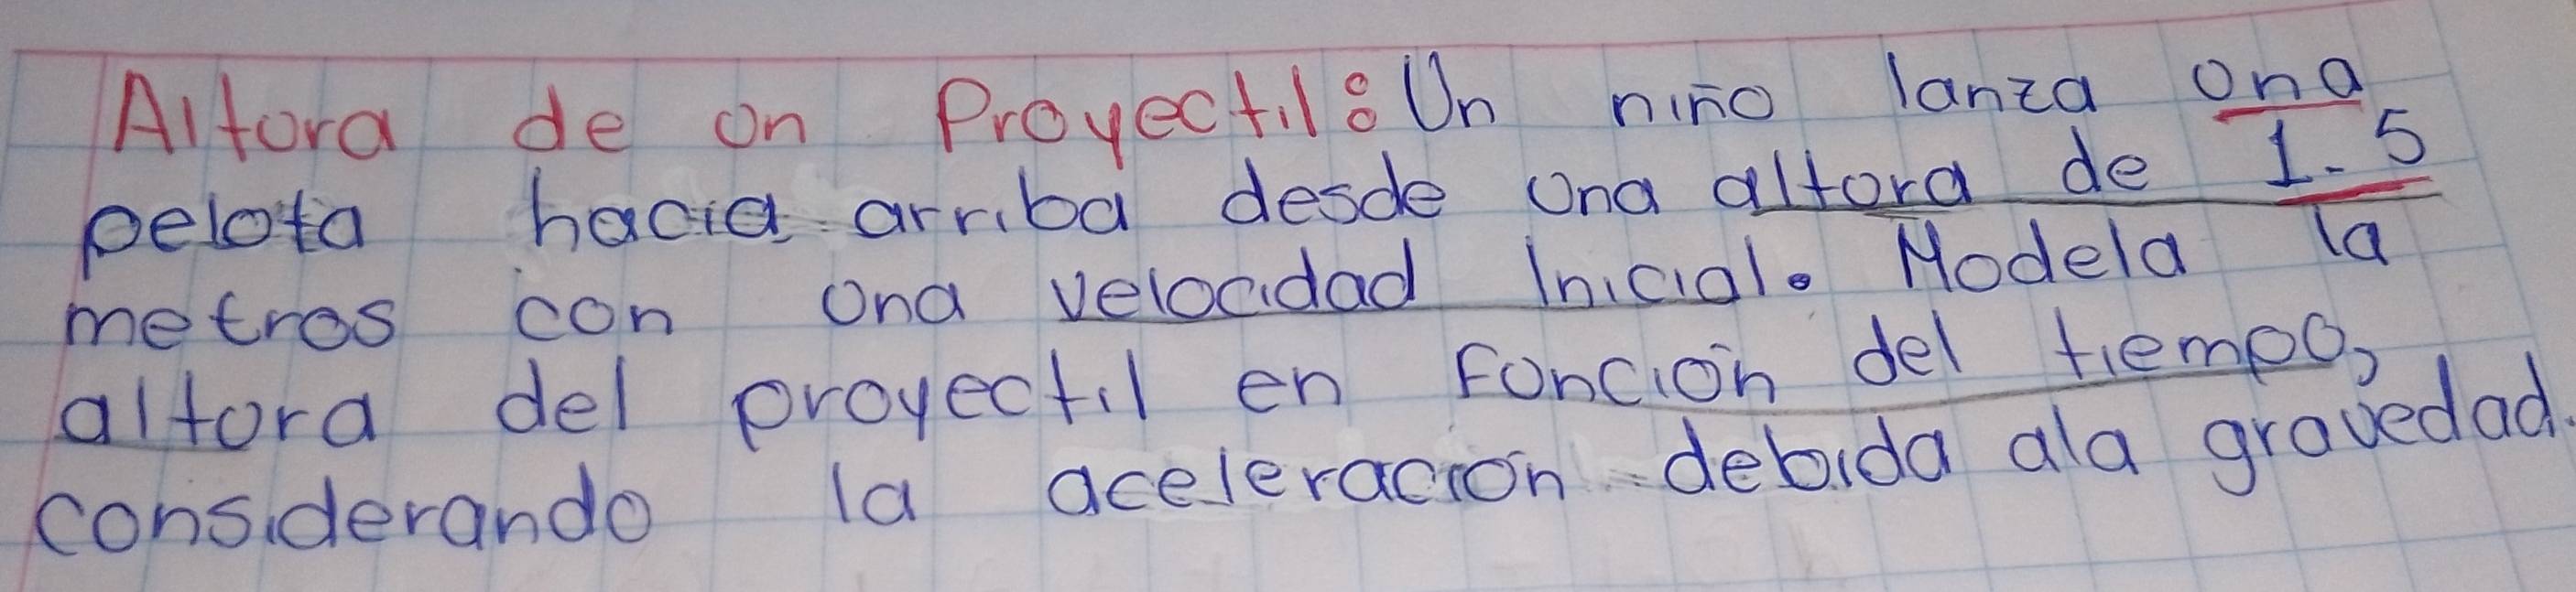 Altora de un Proyectil: Un niño lanza una
pelota hacia arriba desde una altora de 1.5
metros con una velocidad Inicial. Modela la
altora del proyectil en Función del tiempo,
considerando la aceleración debida ala gravedad.